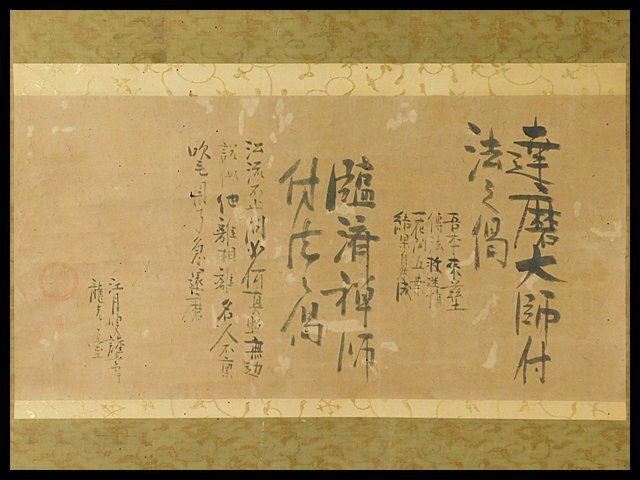 達磨大師付
法之偈
吾本来茲土
傳法救迷情
一花開五葉
結果自然成
臨濟禅師
付法之偈
沿流不止問如何真照無邊
説似他離相離名人不稟
吹毛用了急還磨
江月叟
龍光